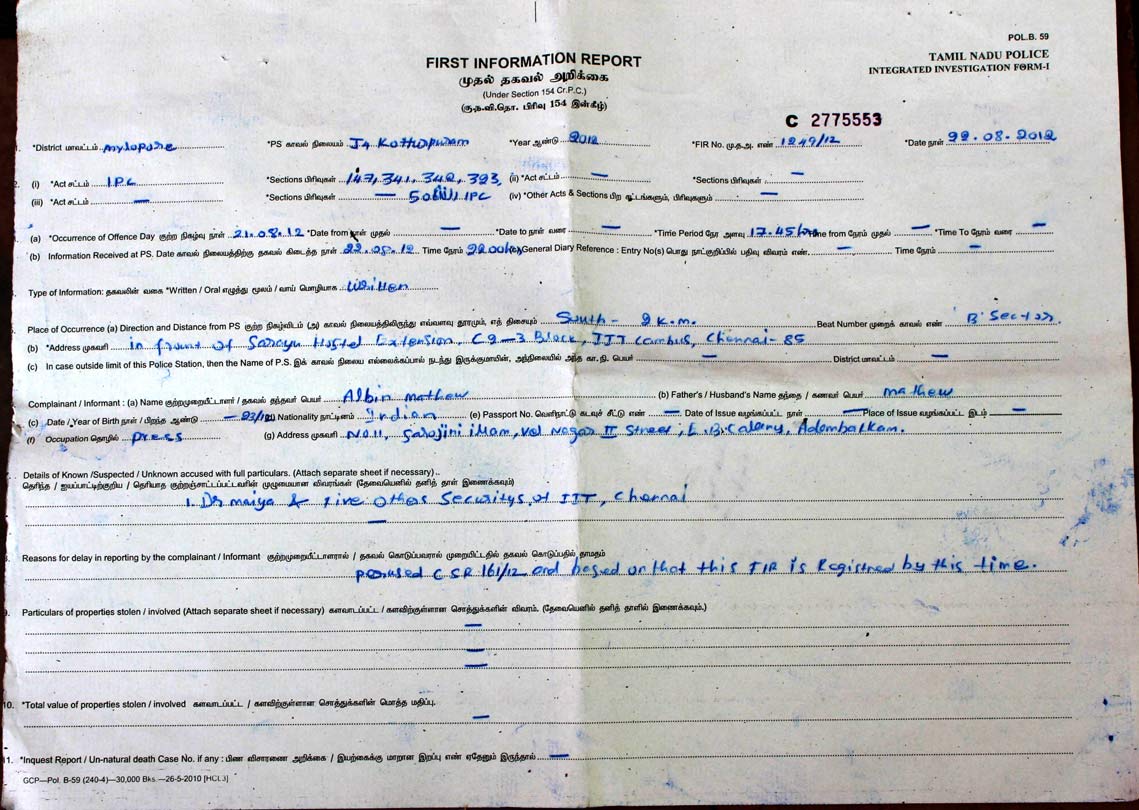 POL.B. 59
FIRST INFORMATION REPORT
TAMIL NADU POLICE
முதல் தகவல் அறிக்கை
INTEGRATED INVESTIGATION FORM-I
(Under Section 154 Cr.P.C.)
(கு.ந.வி.தொ. பிரிவு 154 இன்கீழ்)
C 2775553
*District மாவட்டம் mylapore *PS காவல் நிலையம் J4 Kotturpuram *Year ஆண்டு 2012 *FIR No. மு.த.அ. எண் 1249/12 *Date நாள் 22.08.2012
(i) *Act சட்டம் IPC *Sections பிரிவுகள் 147, 341, 342, 323, (ii) *Act சட்டம் — *Sections பிரிவுகள் —
(iii) *Act சட்டம் — *Sections பிரிவுகள் — 506(ii) IPC (iv) *Other Acts & Sections பிற சட்டங்களும், பிரிவுகளும் —
(a) *Occurrence of Offence Day குற்ற நிகழ்வு நாள் 21.08.12 *Date from நாள் முதல் — *Date to நாள் வரை — *Time Period நேர அளவு 17.45 hrs Time from நேரம் முதல் — *Time To நேரம் வரை —
(b) Information Received at PS. Date காவல் நிலையத்திற்கு தகவல் கிடைத்த நாள் 22.08.12 Time நேரம் 22.00 hrs (c) General Diary Reference : Entry No(s) பொது நாட்குறிப்பில் பதிவு விவரம் எண். — Time நேரம் —
Type of Information: தகவலின் வகை *Written / Oral எழுத்து மூலம் / வாய் மொழியாக Written
Place of Occurrence (a) Direction and Distance from PS குற்ற நிகழ்விடம் (அ) காவல் நிலையத்திலிருந்து எவ்வளவு தூரமும், எத் திசையும் South - 2 k.m. Beat Number முறைக் காவல் எண் B' Sector.
(b) *Address முகவரி in front of Sarayu Hostel Extension, C2-3 Block, IIT campus, Chennai-85
(c) In case outside limit of this Police Station, then the Name of P.S. இக் காவல் நிலைய எல்லைக்கப்பால் நடந்து இருக்குமாயின், அந்நிலையில் அந்த கா.நி. பெயர் — District மாவட்டம் —
Complainant / Informant : (a) Name குற்றமுறையீட்டாளர் / தகவல் தந்தவர் பெயர் Albin mathew (b) Father's / Husband's Name தந்தை / கணவர் பெயர் mathew
(c) Date / Year of Birth நாள் / பிறந்த ஆண்டு — 23/12 (d) Nationality நாட்டினம் Indian (e) Passport No. வெளிநாட்டு கடவுச் சீட்டு எண் — Date of Issue வழங்கப்பட்ட நாள் — Place of Issue வழங்கப்பட்ட இடம் —
(f) Occupation தொழில் press (g) Address முகவரி No.11, Sarojini illam, Vel Nagar II Street, E.B. Colany, Adambakkam.
Details of Known /Suspected / Unknown accused with full particulars. (Attach separate sheet if necessary)..
தெரிந்த / ஐயப்பாட்டிற்குரிய / தெரியாத குற்றஞ்சாட்டப்பட்டவரின் முழுமையான விவரங்கள் (தேவையெனில் தனித் தாள் இணைக்கவும்)
1. Dr maiya & Five Others Securitys of IIT, Chennai
—
Reasons for delay in reporting by the complainant / Informant குற்றமுறையீட்டாளரால் / தகவல் கொடுப்பவரால் முறையீட்டதில் தகவல் கொடுப்பதில் தாமதம்
perused CSR 161/12 and based on that this FIR is Registred by this time.
9. Particulars of properties stolen / involved (Attach separate sheet if necessary) களவாடப்பட்ட / களவிற்குள்ளான சொத்துக்களின் விவரம். (தேவையெனில் தனித் தாளில் இணைக்கவும்.)
—
—
—
10. *Total value of properties stolen / involved களவாடப்பட்ட / களவிற்குள்ளான சொத்துக்களின் மொத்த மதிப்பு.
—
11. *Inquest Report / Un-natural death Case No. if any : பிண விசாரணை அறிக்கை / இயற்கைக்கு மாறான இறப்பு எண் ஏதேனும் இருந்தால் —
GCP—Pol. B-59 (240-4)—30,000 Bks.—26-5-2010 [HCL3]